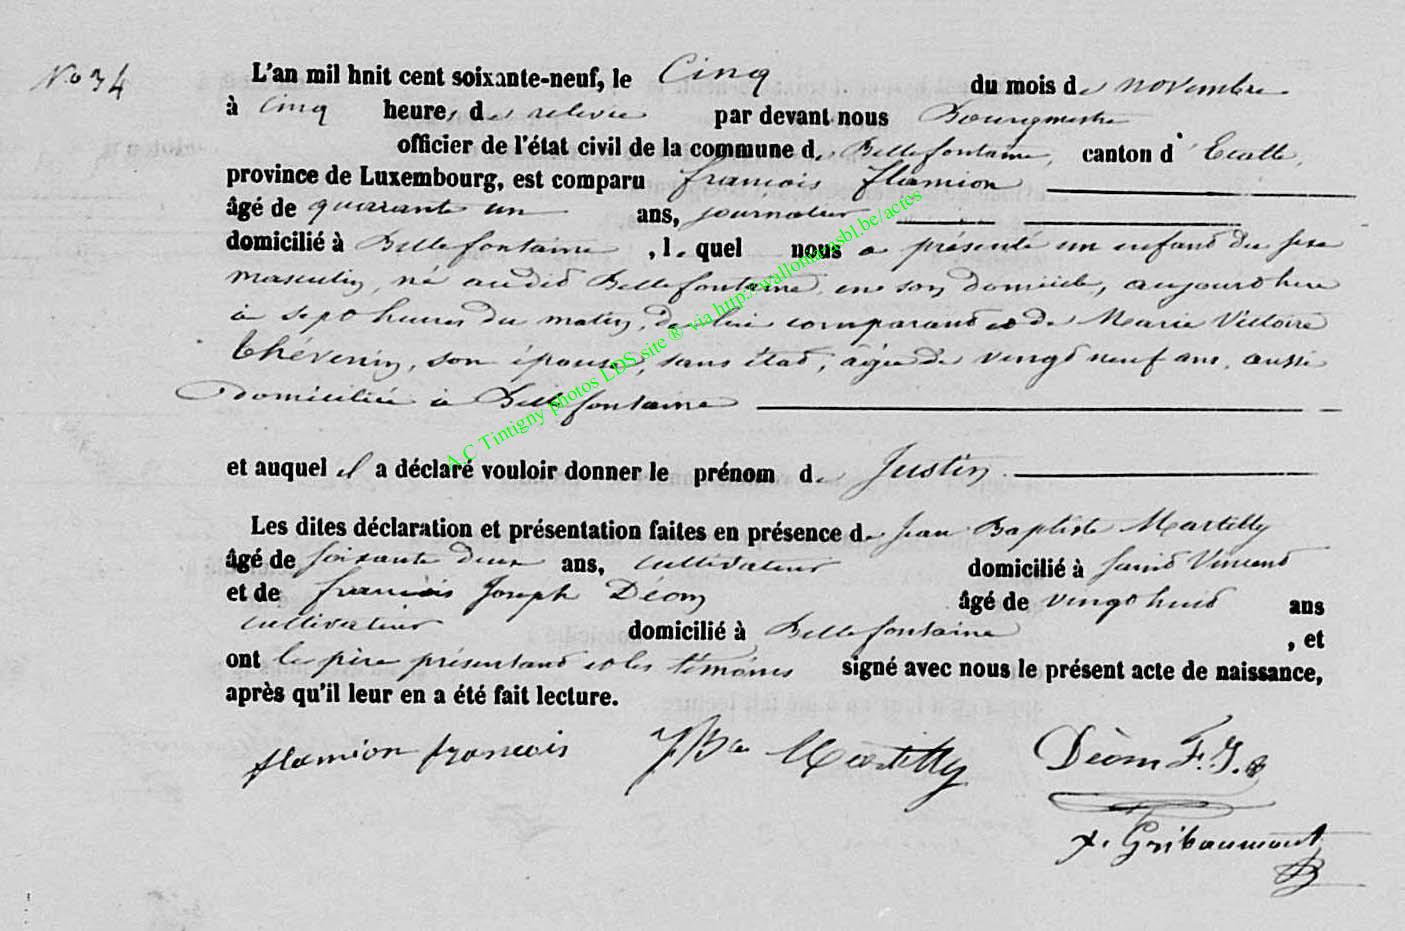 No 34
L'an mil huit cent soixante-neuf, le Cinq du mois de novembre
à cinq heures de relevée par devant nous Bourgmestre
officier de l'état civil de la commune de Bellefontaine, canton d'Etalle,
province de Luxembourg, est comparu françois flamion
âgé de quarante un ans, journalier
domicilié à Bellefontaine, lequel nous a présenté un enfant du sexe
masculin, né audit Bellefontaine, en son domicile, aujourd'hui
à sept heures du matin, de lui comparant et de Marie Victoire
thévenin, son épouse, sans état, âgée de vingt neuf ans, aussi
domiciliée à Bellefontaine
et auquel il a déclaré vouloir donner le prénom de Justin
Les dites déclaration et présentation faites en présence de Jean Baptiste Martilly
âgé de soixante deux ans, cultivateur domicilié à Saint Vincent
et de françois Joseph Déom âgé de vingt huit ans
cultivateur domicilié à Bellefontaine, et
ont le père présentant et les témoins signé avec nous le présent acte de naissance,
après qu'il leur en a été fait lecture.
flamion françois JBte Martilly Dèom F. J.
x. Gribaumont
A.C Tintigny photos LDS site ® via http://wallonica.asbl.be/actes